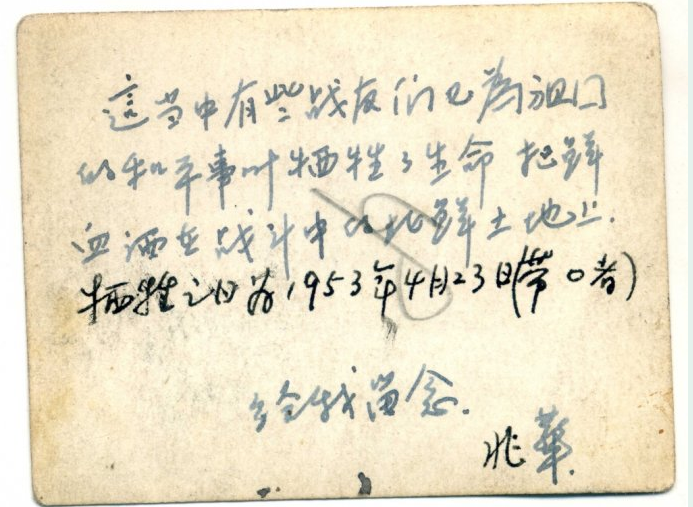 這当中有些战友们也為祖囗
的和平事叶牺牲了生命 把鲜
血洒在战斗中的北鲜土地上.
牺牲之日为1953年4月23日(带○者)
给我留念.
兆華.